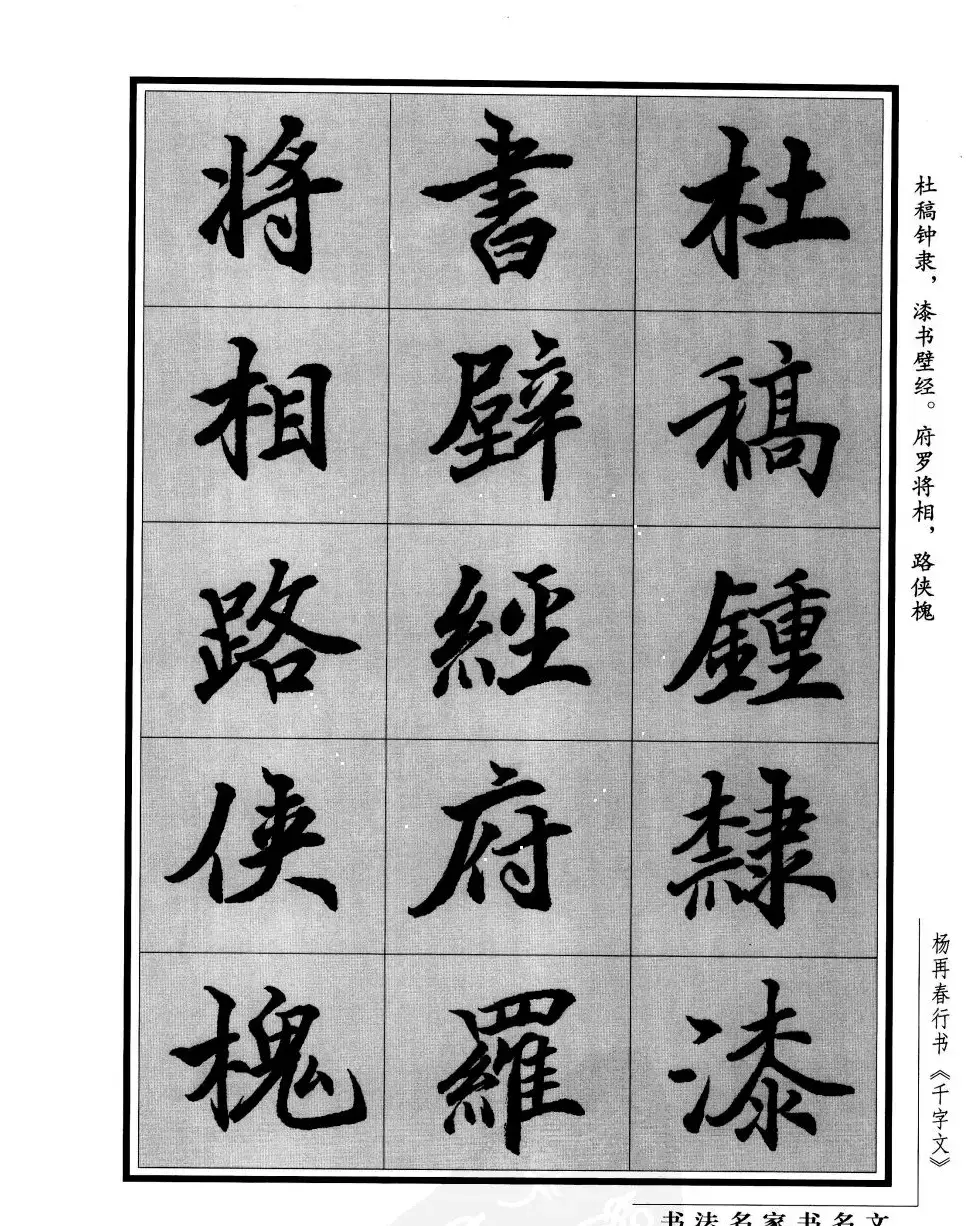 杜稿鍾隸漆
書壁經府羅
将相路侠槐
杜稿钟隶，漆书壁经。府罗将相，路侠槐
杨再春行书《千字文》
书法名家书名文